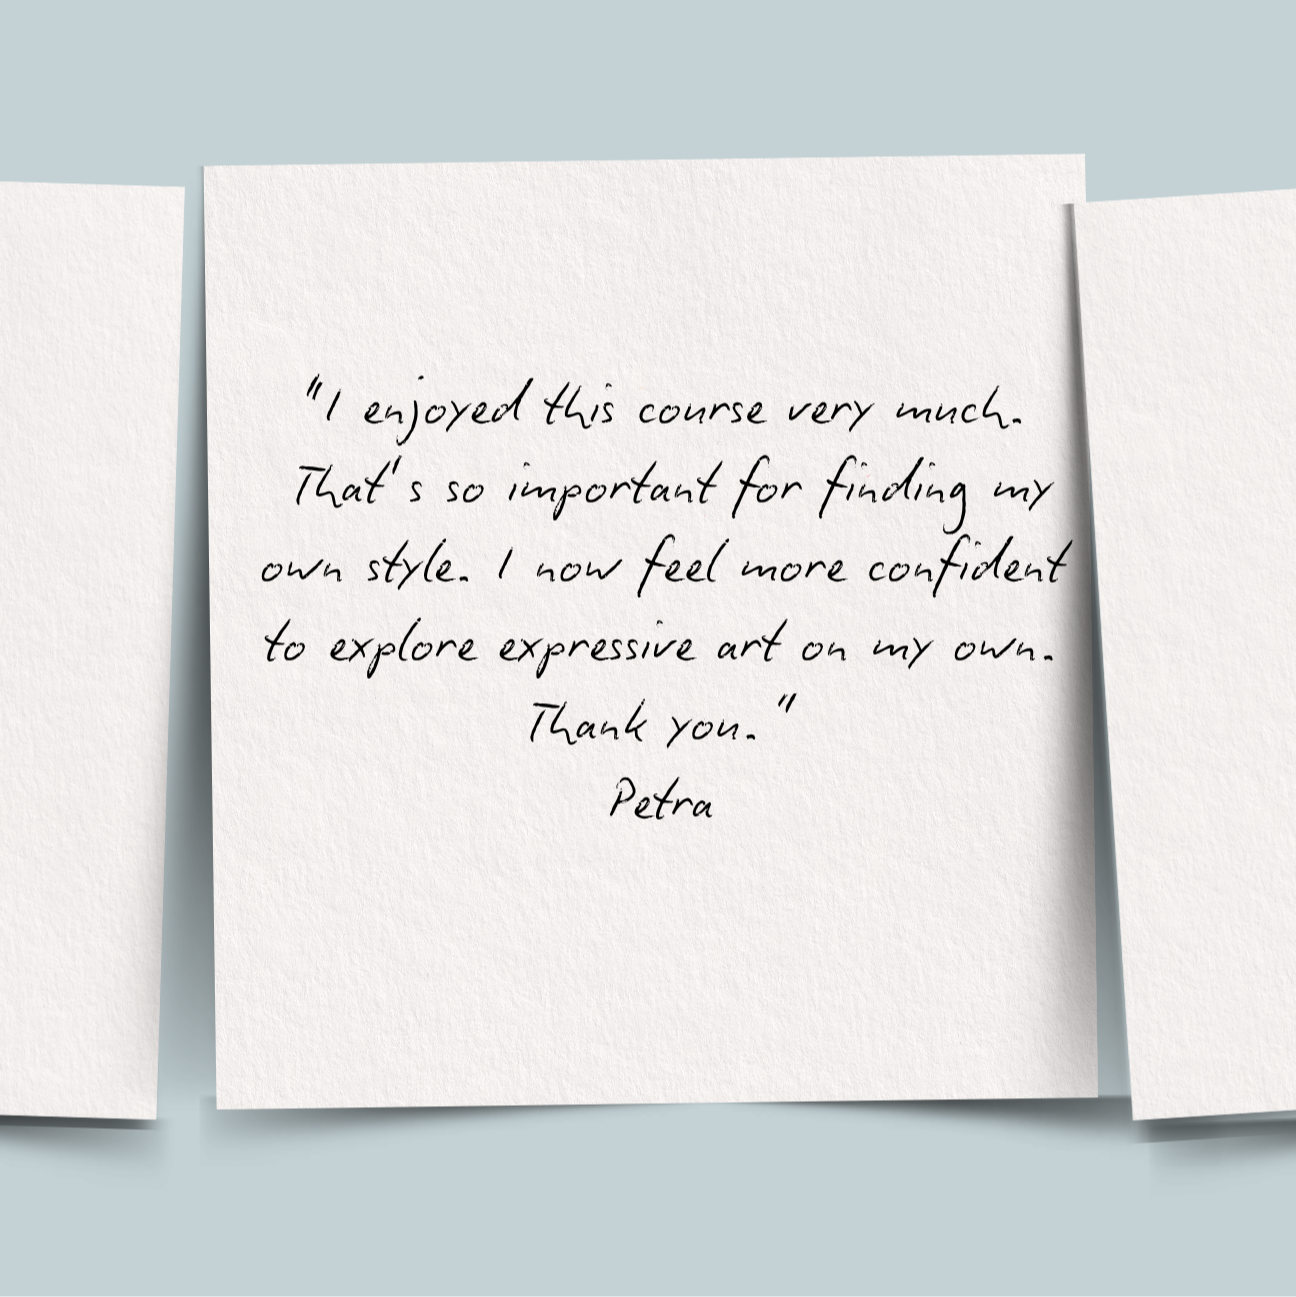 "I enjoyed this course very much.
That's so important for finding my
own style. I now feel more confident
to explore expressive art on my own.
Thank you."
Petra